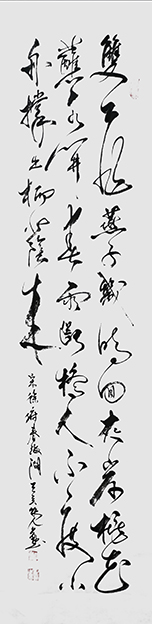 雙飛燕子幾時回夾岸桃花
蘸水開春雨斷橋人不度小
舟撐出柳陰來
宋徐俯春游湖